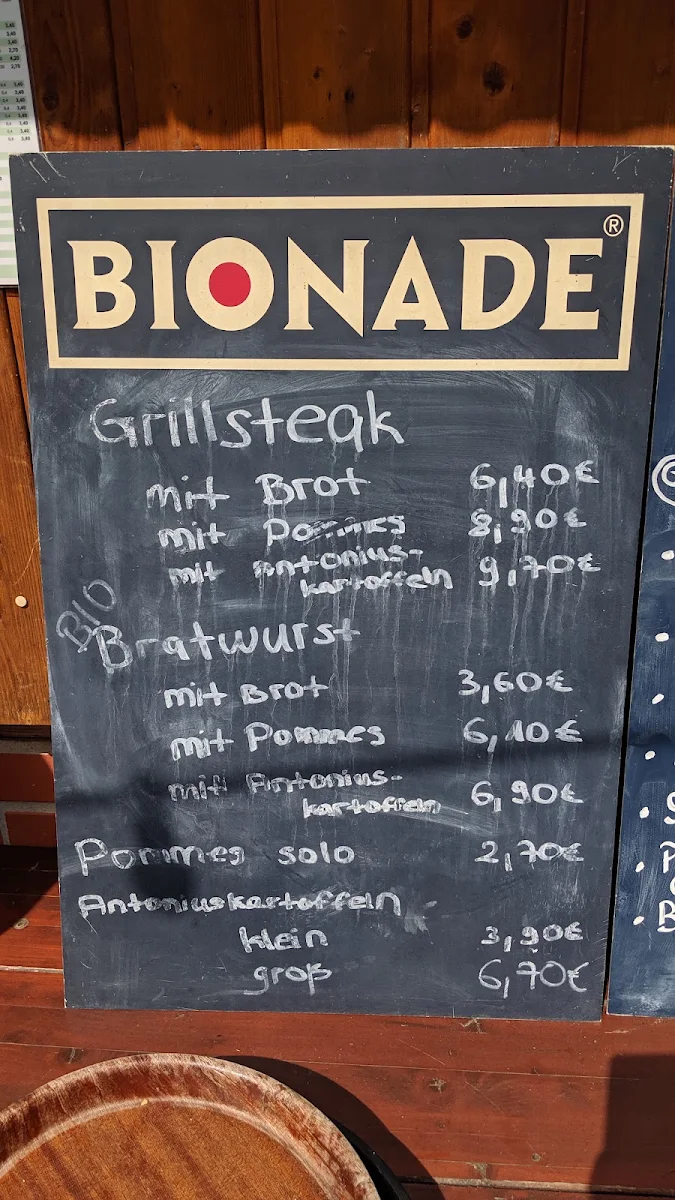 BIONADE®
Grillsteak
mit Brot 6,40€
mit Pommes 8,90€
mit Antonius-
kartoffeln 9,70€
BIO
Bratwurst
mit Brot 3,60€
mit Pommes 6,10€
mit Antonius-
kartoffeln 6,90€
Pommes solo 2,70€
Antoniuskartoffeln
klein 3,90€
groß 6,70€